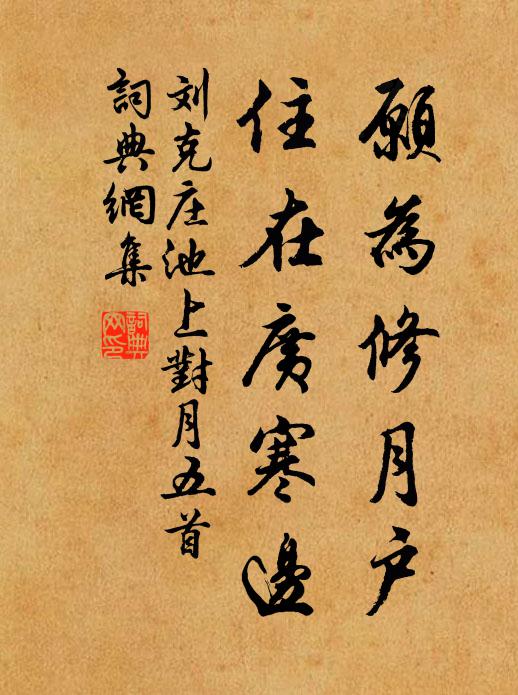 願為修月户
住在廣寒邊
刘克庄池上對月五首
詞典網集
詞典
网印